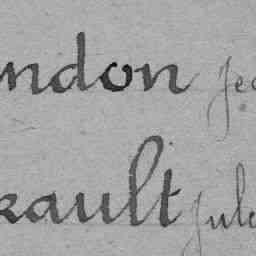 ndon Je
kault Jule